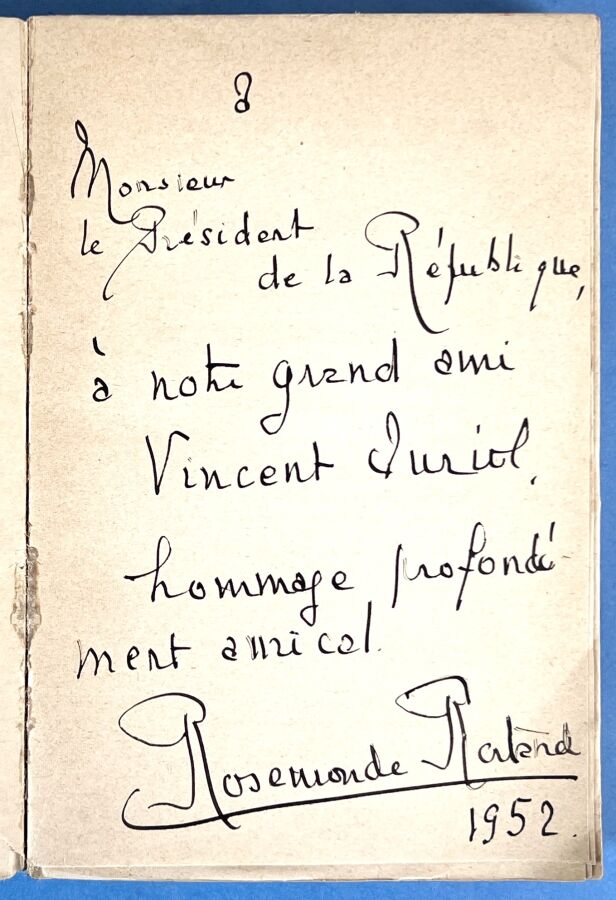 à
Monsieur
le Président
de la République,
à notre grand ami
Vincent Auriol,
hommage profondé-
ment amical.
Rosemonde Rostand
1952.